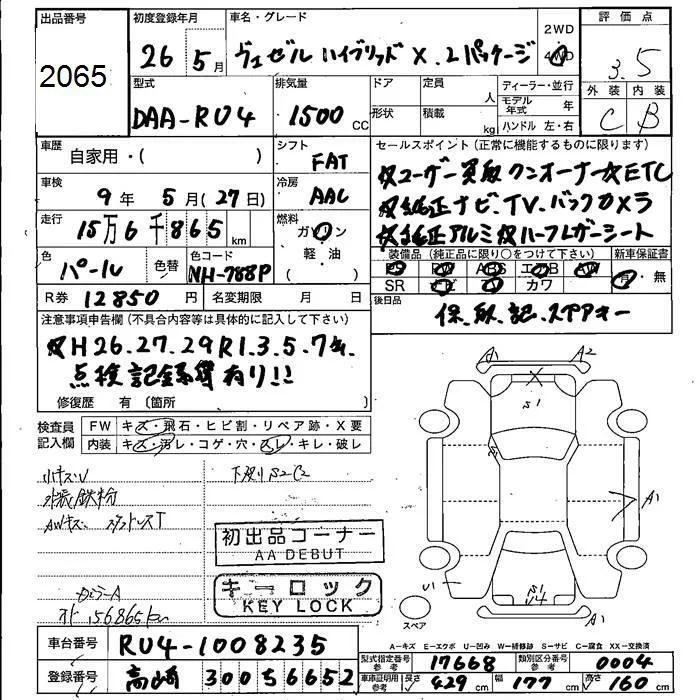 出品番号
2065
初度登録年月
26年 5月
車名・グレード
ヴェゼル ハイブリッド X.Lパッケージ
2WD
4WD
評価点
3.5
外装 内装
C B
型式
DAA-RU4
排気量
1500 CC
ドア
形状
定員 人
積載 kg
ディーラー・並行
モデル年式 年
ハンドル 左・右
車歴
自家用・( )
シフト
FAT
セールスポイント(正常に機能するものに限ります)
☆ユーザー買取 ワンオーナー☆ETC
☆純正ナビ.TV.バックカメラ
☆純正アルミ☆ハーフレザーシート
車検
9年 5月(27日)
冷房
AAC
走行
15万6千865km
燃料
ガソリン
軽・油
( )
色
パール
色替
色コード
NH-788P
装備品(純正品に限り○をつけて下さい)
PS PW ABS エアB AW
SR ナビ TV カワ
新車保証書
有・無
R券 12850円
名変期限 月 日
後日品
保.取.記.スペアキー
注意事項申告欄(不具合内容等は具体的に記入して下さい)
☆H26.27.29R1.3.5.7年
点検記録簿有り!!
修復歴 有(箇所 )
検査員記入欄
FW キズ・飛石・ヒビ割・リペア跡・X要
内装 キズ・汚レ・コゲ・穴・スレ・キレ・破レ
小キズ.U
外装鉄粉
AWキズ. スタットレスT
下廻りS2C2
初出品コーナー
AA DEBUT
キーロック
KEY LOCK
156865km
A1 A2
X
S1
A1
U1
S1
U4
A1
スペア
車台番号
RU4-1008235
登録番号
高崎 300 さ 6652
A-キズ E-エクボ U-凹み W-補修跡 S-サビ C-腐食 XX-交換済
型式指定番号 参考
17668
類別区分番号 参考
0004
車庫証明用 参考
長さ 429cm
幅 177cm
高さ 160cm